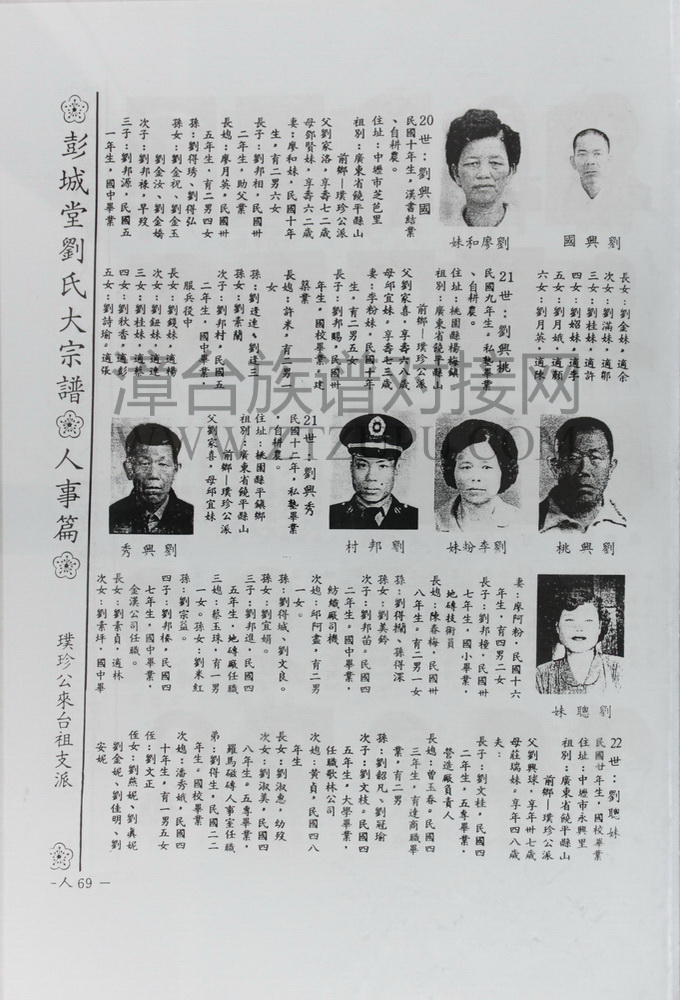 劉興國
劉廖和妹
20世：劉興國
民國十年生，漢書結業
、自耕農。
住址：中壢市芝芭里
祖別：廣東省饒平縣山
前鄉—璞珍公派
父劉家洛，享壽七二歲
母鄧賢妹，享壽六二歲
妻：廖和妹，民國十年
生，育二男六女
長子：劉邦相，民國卅
二年生，助父業
長媳：廖月英，民國卅
五年生，育二男四女
孫：劉得琇、劉得弘
孫女：劉金祝、劉金玉
劉金汝、劉金嬌
次子：劉邦祿，早歿
三子：劉邦源，民國五
一年生，國中畢業
長女：劉金妹，適余
次女：劉滿妹，適鄒
三女：劉桂妹，適許
四女：劉妱妹，適李
五女：劉月娥，適顏
六女：劉月英，適陳
21世：劉興桃
民國九年生，私塾畢業
、自耕農。
住址：桃園縣楊梅鎮
祖別：廣東省饒平縣山
前鄉—璞珍公派
父劉家喜，享壽六八歲
母邱宜妹，享壽七三歲
妻：李粉妹，民國十年
生，育二男五女
長子：劉邦賜，民國卅
年生，國校畢業，建
築業
長媳：許米，育二男一
女
孫：劉達達、劉達三
孫女：劉素蘭
次子：劉邦村，民國五
二年生，國中畢業，
服兵役中
長女：劉錢妹，適楊
次女：劉鈕妹，適連
三女：劉桂妹，適蔡
四女：劉秋香，適彭
五女：劉詩瑜，適張
劉興桃
劉李粉妹
劉邦村
21世：劉興秀
民國十二年，私塾畢業
，自耕農。
住址：桃園縣平鎮鄉
祖別：廣東省饒平縣山
前鄉—璞珍公派
父劉家喜，母邱宜妹
劉興秀
劉聰妹
妻：廖阿粉，民國十六
年生，育四男二女
長子：劉邦橦，民國卅
七年生，國小畢業，
地磚技術員
長媳：陳春梅，民國卅
八年生。育二男一女
孫：劉得欄、孫得深
孫女：劉美鈴
次子：劉邦苗。民國四
二年生，國中畢業，
紡織廠司機
次媳：邱阿盡，育二男
一女。
孫：劉得城、劉文良。
孫女：劉宜娟。
三子：劉邦進，民國四
五年生、地磚廠任職
三媳：蔡玉珠，育一男
一女。孫女：劉米紅
孫：劉宗益。
四子：劉邦棱，民國四
七年生，國中畢業，
金漢公司任職。
長女：劉素貞，適林
次女：劉素坪，國中畢
22世：劉聰妹
民國廿年生，國校畢業
住址：中壢市永興里
祖別：廣東省饒平縣山
前鄉—璞珍公派
父劉興球，享年卅七歲
母莊瑞妹。享年四八歲
夫：
長子：劉文桂，民國四
二年生，五專畢業，
營造廠負責人
長媳：曾玉春。民國四
三年生，育達商職畢
業，育二男
孫：劉韶凡、劉冠瑜
次子：劉文枝。民國四
五年生，大學畢業，
任職歌林公司
次媳：黃貞，民國四八
年生
長女：劉淑惠，幼歿
次女：劉淑美，民國四
八年生。五專畢業，
羅馬磁磚人事室任職
弟：劉得生，民國二二
年生。國校畢業
次媳：潘秀娥，民國四
十年生，育一男五女
侄：劉文正
侄女：劉燕妮、劉眞妮
劉金妮、劉佳明、劉
安妮
彭城堂劉氏大宗譜 人事篇
璞珍公來台祖支派
-人69－
漳台族谱对接网
WWW.ZTZUPU.COM